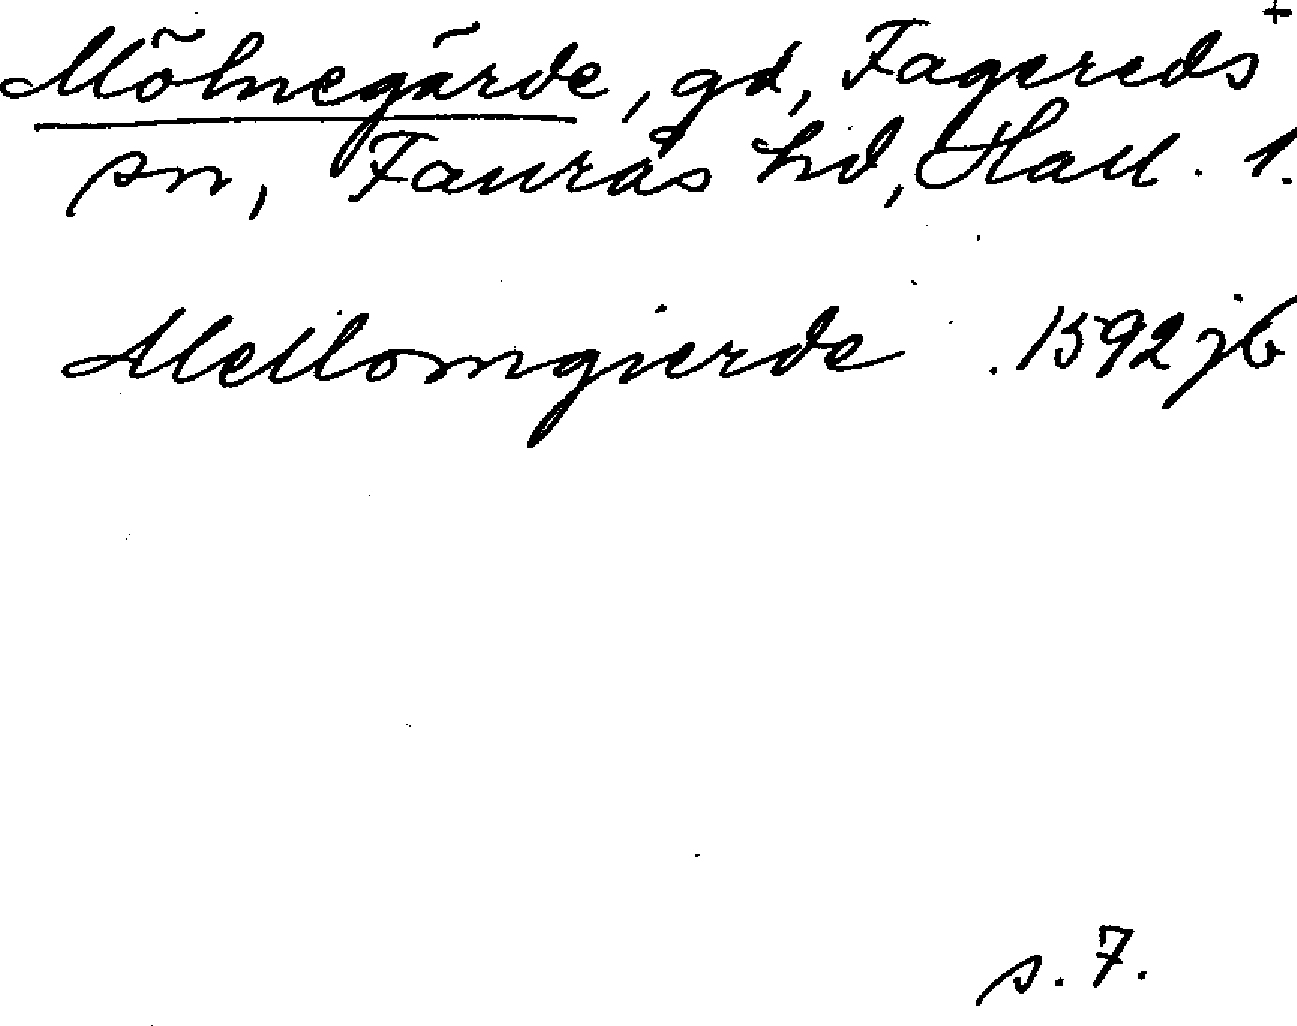 Mölnegärde, gd, Fagereds +
sn, Faurås hd, Hall. 1.
Mellomgierde . 1592 jb
s. 7.